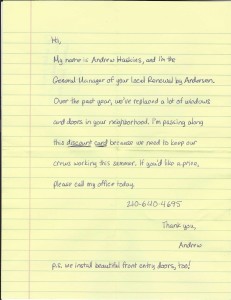 Hi,
My name is Andrew Haskins, and I'm the
General Manager of your local Renewal by Andersen.
Over the past year, we've replaced a lot of windows
and doors in your neighborhood. I'm passing along
this discount card because we need to keep our
crews working this summer. If you'd like a price,
please call my office today.
210-640-4695
Thank you,
Andrew
p.s. we install beautiful front entry doors, too!